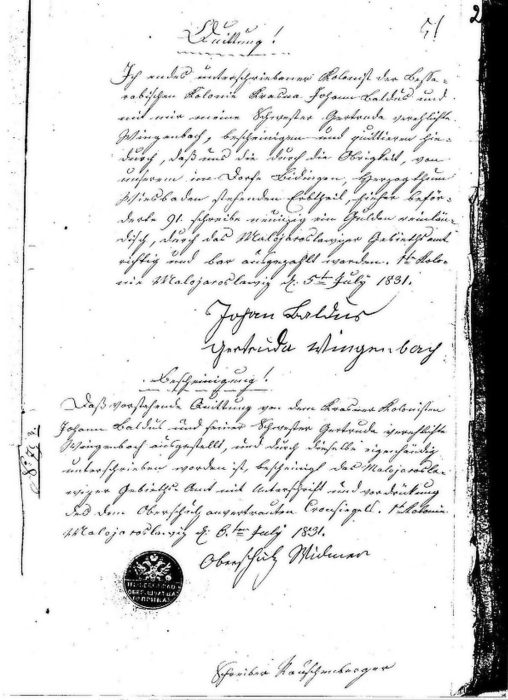 51
2
Quittung!
Ich endes unterschriebener Kolonist der Bessa-
rabischen Kolonie Krasna Johann Baldus und
mit mir meine Schwester Gertruda verehlichte
Wingenbach, bescheinigen und quittieren hie-
durch, daß uns die durch die Obrigkeit, von
unserem im Dorfe Bidingen, Herzogthum
Wiesbaden stehenden Erbtheil, hieher beför-
derte 91. schreibe neunzig ein Gulden reinlän-
disch, durch das Malojaroslawezer Gebiethsamt
richtig und bar ausgezahlt worden. 1te Kolo-
nie Malojaroslawez d. 5ten July 1831.
Johan Baldus
Gertruda Wingenbach
Bescheinigung!
Daß vorstehende Quittung von dem Krasner Kolonisten
Johann Baldus und seiner Schwester Gertruda verehlichte
Wingenbach ausgestellt, und durch dieselbe eigenhändig
unterschrieben worden ist, bescheinigt das Malojarosla-
wezer Gebieths Amt mit Unterschrift und Vordrückung
des dem Oberschulz anvertrauten Cronsiegels. 1te Kolonie
Malojaroslawez d. 6ten July 1831.
Oberschulz Widmer
Schreiber Rauschenberger